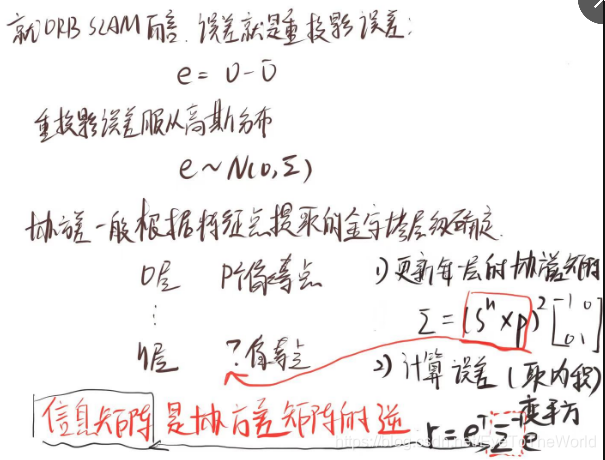 就ORB SLAM而言,误差就是重投影误差:
e = U - Ū
重投影误差服从高斯分布
e ~ N(0, Σ)
协方差一般根据特征点提取的金字塔层级确定.
0层 P个像素点
⋮
n层 ?个像素点
1) 更新每一层的协方差矩阵
Σ = (Sⁿ × p)² [1 0
0 1]
2) 计算误差 (取内积)
变平方
r = eᵀ Σ⁻¹ e
信息矩阵 是协方差矩阵的逆